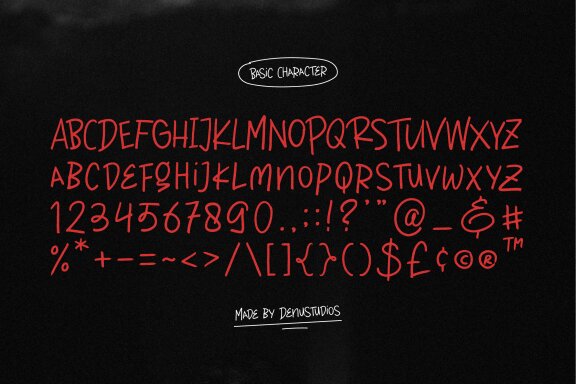 BASIC CHARACTER
ABCDEFGHIJKLMNOPQRSTUVWXYZ
ABCDEFGHiJKLMNOPQRSTUVWXYZ
1234567890.,:;!?'"@_&#
%*+-=~<>/\[]{}()$£¢©®™
MADE BY DENUSTUDIOS